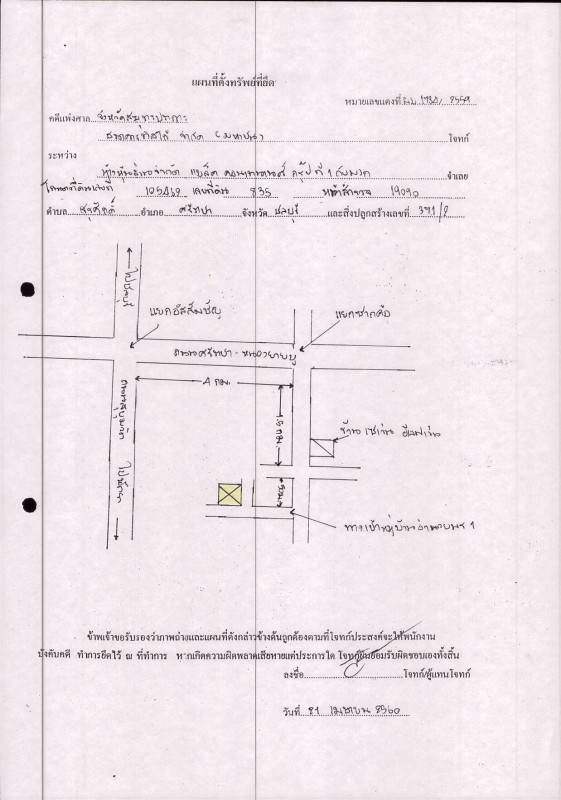 แผนที่ตั้งทรัพย์ที่ยึด
หมายเลขแดงที่ ผบ. 1984/2559
คดีแพ่งศาล จังหวัดสมุทรปราการ
ธนาคารทิสโก้ จำกัด (มหาชน) โจทก์
ระหว่าง
ห้างหุ้นส่วนจำกัด จำเลย
โฉนดที่ดินเลขที่ 105419 เลขที่ดิน 835 หน้าสำรวจ 19090
ตำบล สุรศักดิ์ อำเภอ ศรีราชา จังหวัด ชลบุรี และสิ่งปลูกสร้างเลขที่ 391/2
ไปชลบุรี
แยกอัสสัมชัญ
แยกซากค้อ
ถนนศรีราชา - หนองยายบู
4 กม.
ถนนสุขุมวิท
ไปพัทยา
1.5 กม.
ร้าน เซเว่น อีเลฟเว่น
ทางเข้าหมู่บ้าน 1
ข้าพเจ้าขอรับรองว่าภาพถ่ายและแผนที่ดังกล่าวข้างต้นถูกต้องตามที่โจทก์ประสงค์จะให้พนักงาน
บังคับคดี ทำการยึดไว้ ณ ที่ทำการ หากเกิดความผิดพลาดเสียหายแต่ประการใด โจทก์ยินยอมรับผิดชอบเองทั้งสิ้น
ลงชื่อ โจทก์/ผู้แทนโจทก์
วันที่ 21 เมษายน 2560